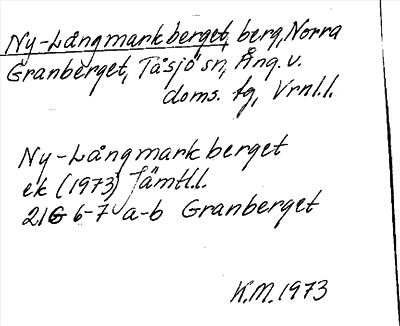 Ny-Långmarkberget, berg, Norra
Granberget, Tåsjö sn, Ång. v.
doms. tg, Vrnl.l.
Ny-Långmarkberget
ek (1973) Jämtl.l.
21G 6-7 a-b Granberget
K.M. 1973